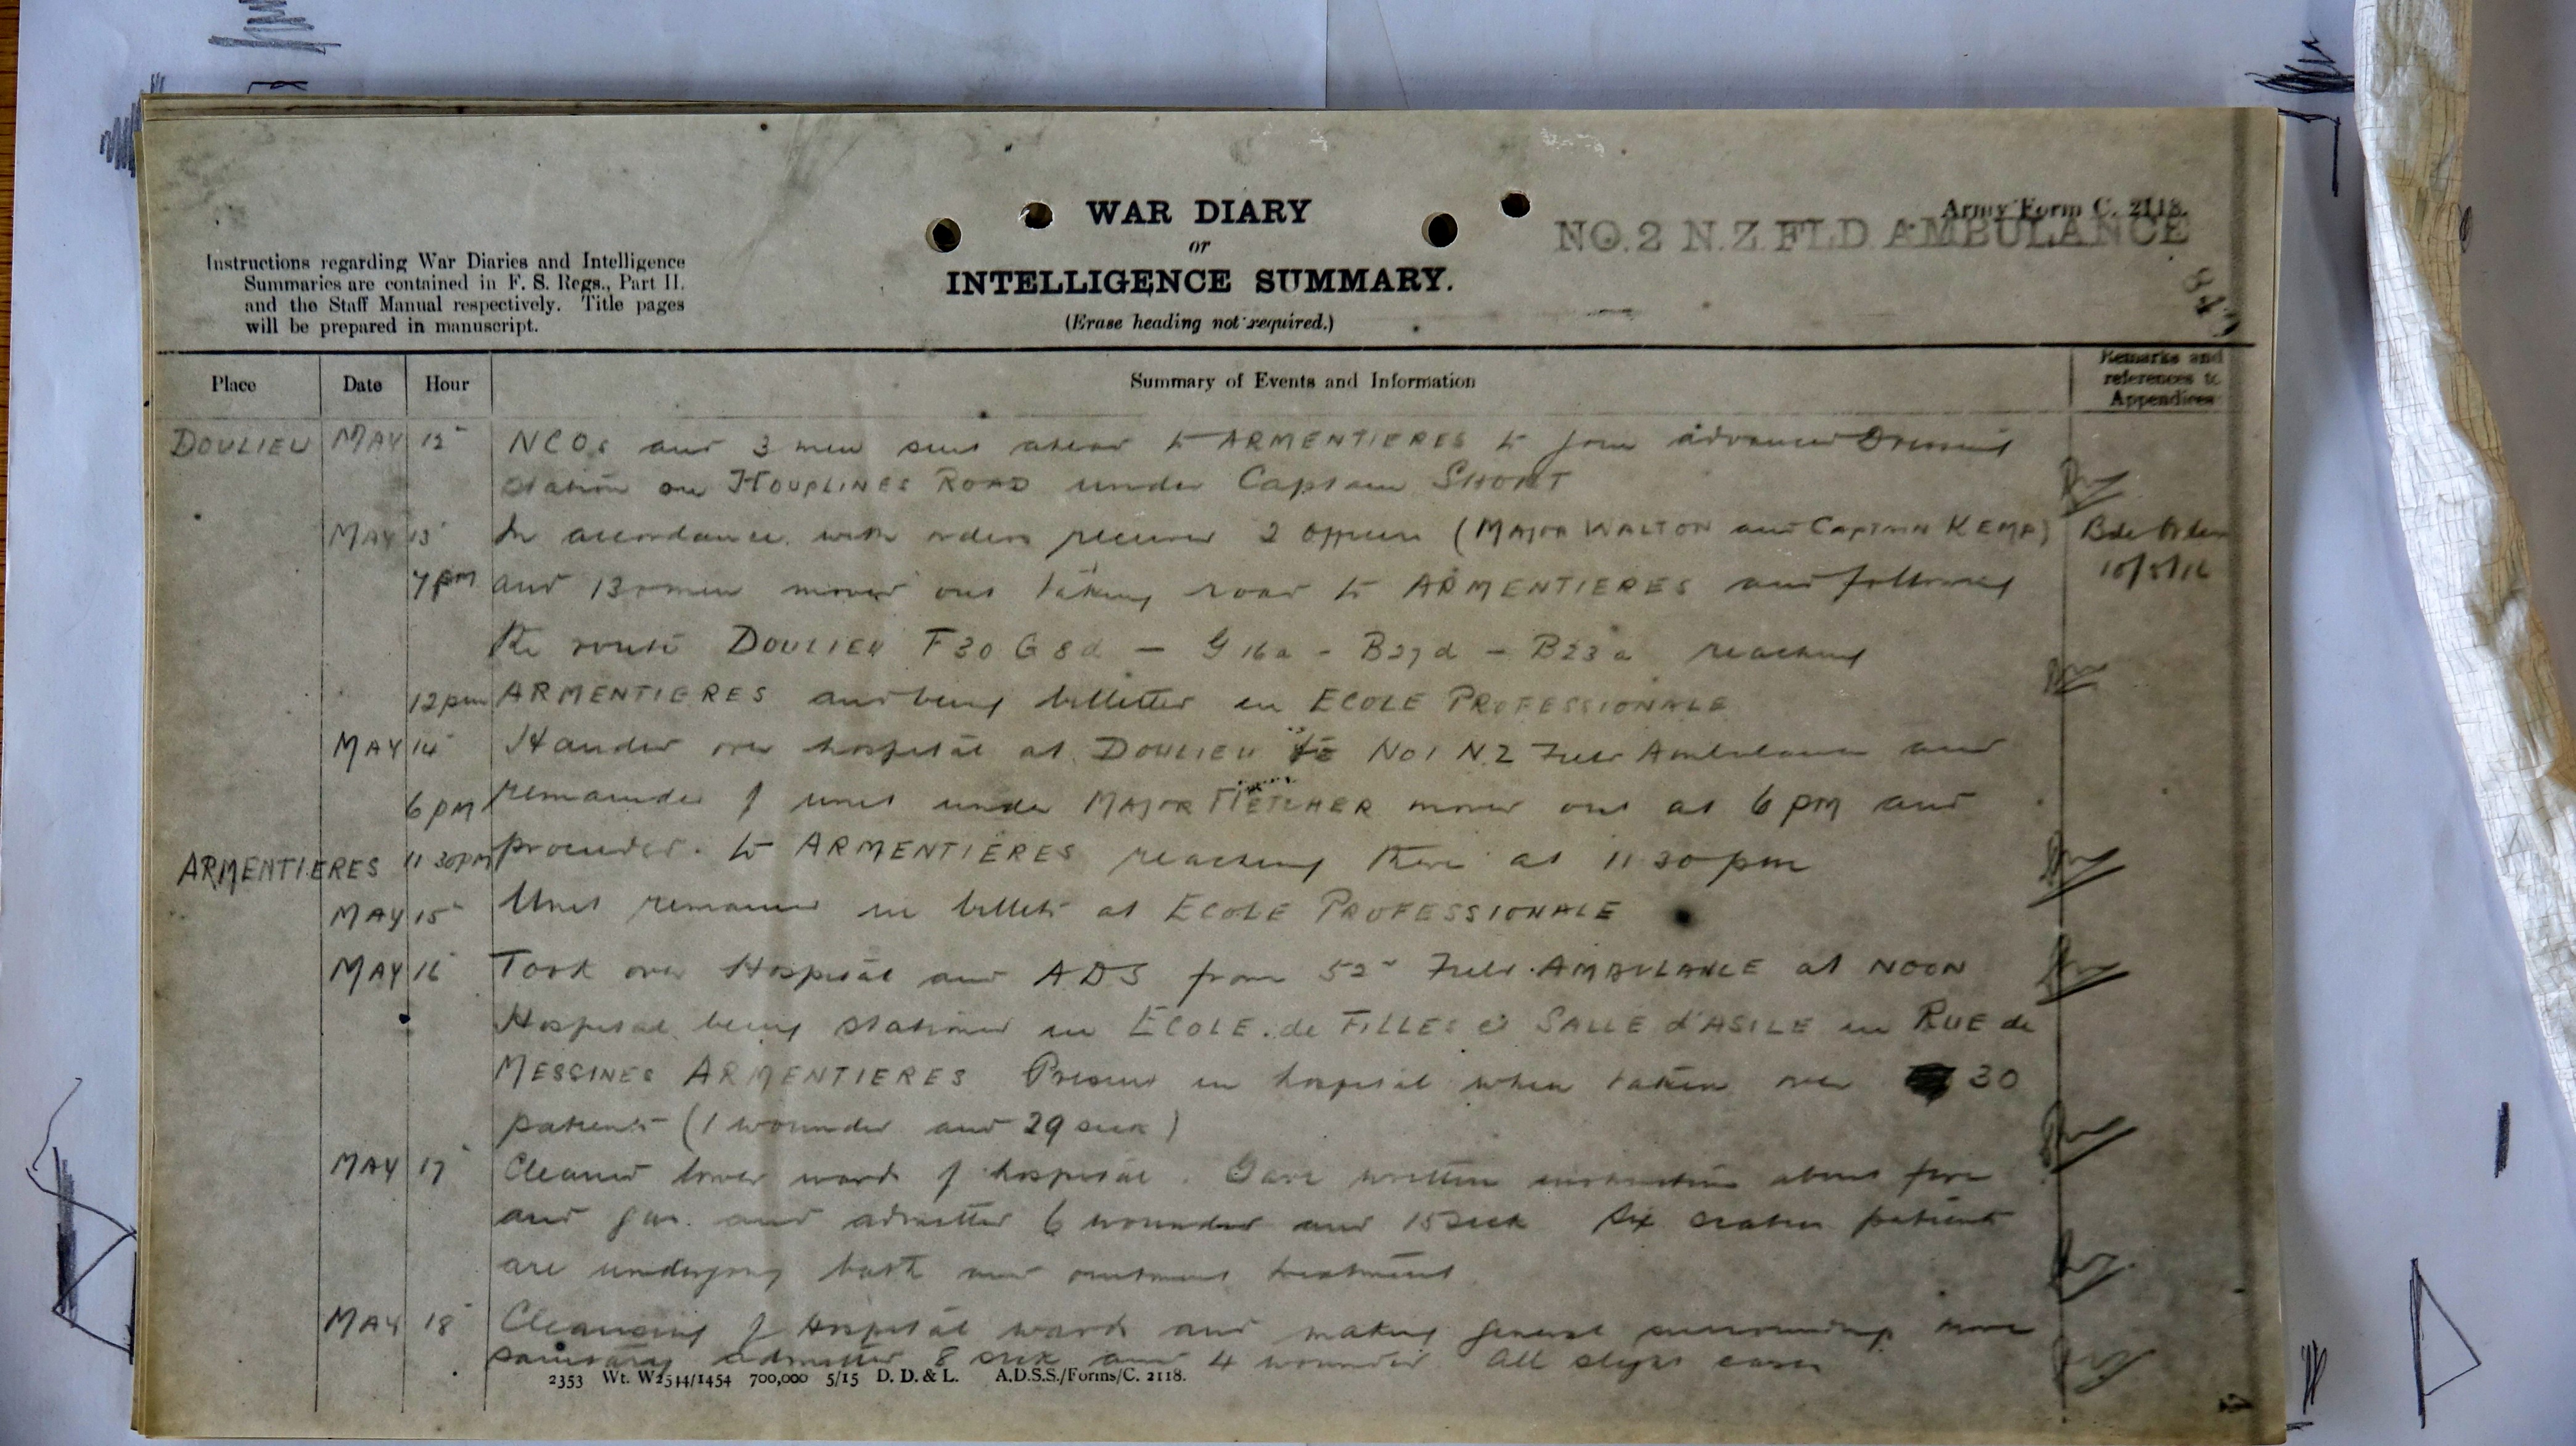 WAR DIARY
or
INTELLIGENCE SUMMARY.
(Erase heading not required.)
Army Form C. 2118.
NO.2 N.Z.FLD AMBULANCE
Instructions regarding War Diaries and Intelligence
Summaries are contained in F. S. Regs., Part II.
and the Staff Manual respectively. Title pages
will be prepared in manuscript.
Place Date Hour Summary of Events and Information Remarks and references to Appendices
DOULIEU MAY 12 NCOs and 3 men sent ahead to ARMENTIERES to join advanced Dressing
station on HOUPLINES ROAD under Captain SHORT
MAY 13 In accordance with orders received 2 officers (MAJOR WALTON and CAPTAIN KEMP) Bde Orders
7pm and 130 men moved out taking road to ARMENTIERES and following 10/5/16
the route DOULIEU F30 G8d - G16a - B27d - B23a reaching
12pm ARMENTIERES and being billetted in ECOLE PROFESSIONALE
MAY 14 Handed over hospital at DOULIEU to No1 NZ Field Ambulance and
6pm remainder of unit under MAJOR FLETCHER moved out at 6pm and
ARMENTIERES 11 30pm proceeded to ARMENTIERES reaching there at 11 30pm
MAY 15 Unit remained in billets at ECOLE PROFESSIONALE
MAY 16 Took over Hospital and ADS from 52nd Field AMBULANCE at NOON
Hospital being stationed in ECOLE de FILLES et SALLE d'ASILE in RUE de
MESSINES ARMENTIERES Present in hospital when taken over 30
patients (1 wounded and 29 sick)
MAY 17 Cleaned lower ward of hospital. Gave written instructions about fire
and gas and admitted 6 wounded and 15 sick Six scabies patients
are undergoing bath and ointment treatment
MAY 18 Cleansing of Hospital wards and making general surroundings more
sanitary admitted 8 sick and 4 wounded All slight cases
2353 Wt. W2544/1454 700,000 5/15 D. D. & L. A.D.S.S./Forms/C. 2118.